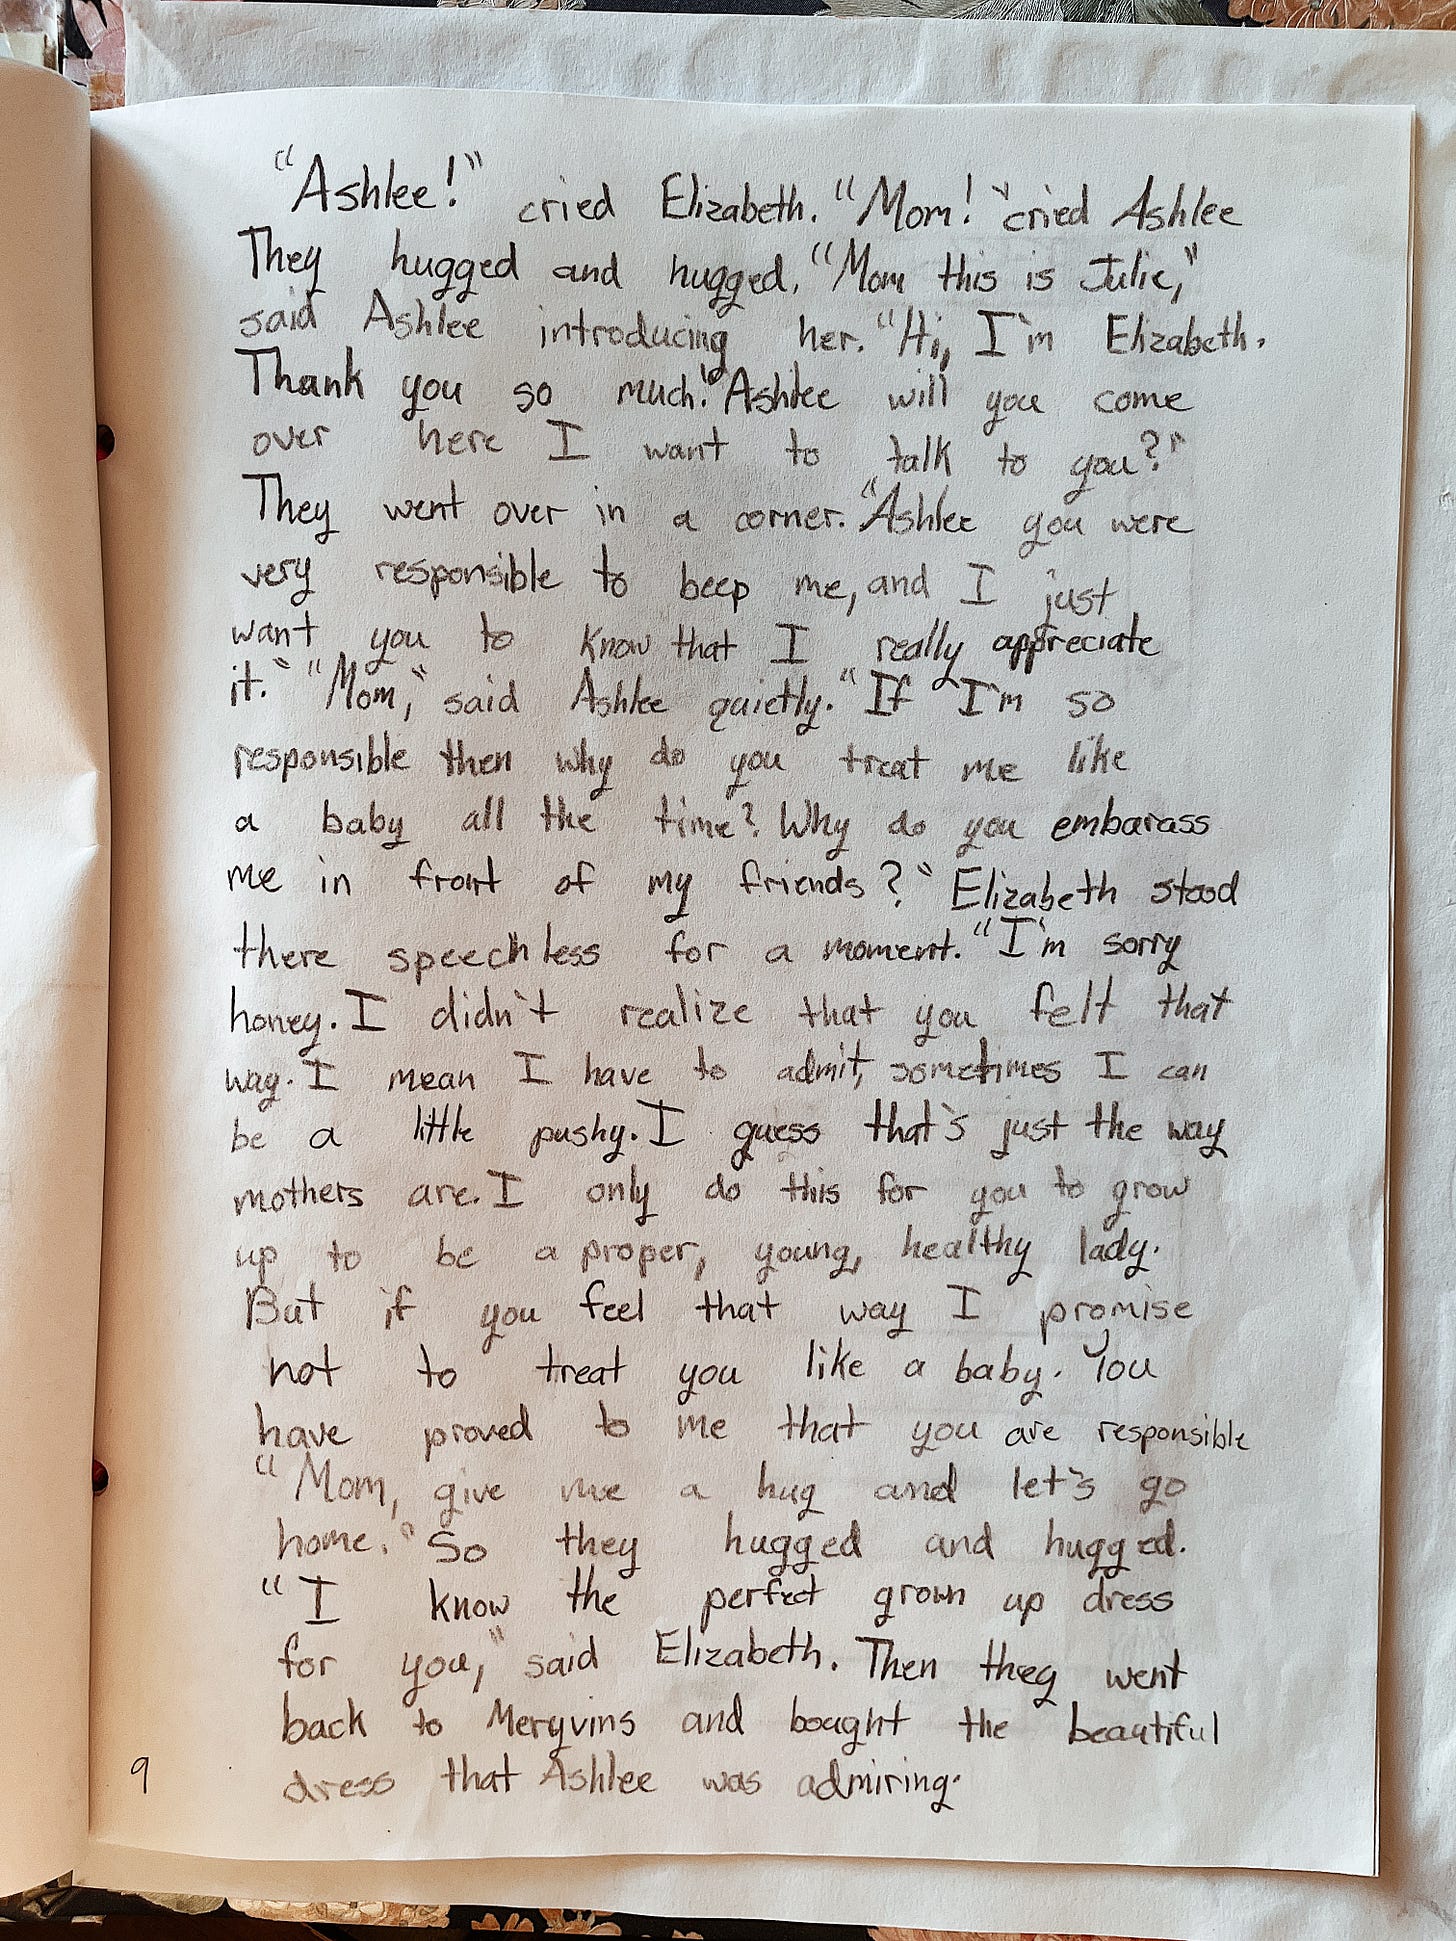 "Ashlee!" cried Elizabeth. "Mom!" cried Ashlee
They hugged and hugged. "Mom this is Julie,"
said Ashlee introducing her. "Hi, I'm Elizabeth.
Thank you so much!" Ashlee will you come
over here I want to talk to you?"
They went over in a corner. "Ashlee you were
very responsible to beep me, and I just
want you to know that I really appreciate
it." "Mom," said Ashlee quietly. "If I'm so
responsible then why do you treat me like
a baby all the time? Why do you embarass
me in front of my friends?" Elizabeth stood
there speechless for a moment. "I'm sorry
honey. I didn't realize that you felt that
way. I mean I have to admit, sometimes I can
be a little pushy. I guess that's just the way
mothers are. I only do this for you to grow
up to be a proper, young, healthy lady.
But if you feel that way I promise
not to treat you like a baby. You
have proved to me that you are responsible
"Mom, give me a hug and let's go
home." So they hugged and hugged.
"I know the perfect grown up dress
for you," said Elizabeth. Then they went
back to Meryvins and bought the beautiful
dress that Ashlee was admiring.
9